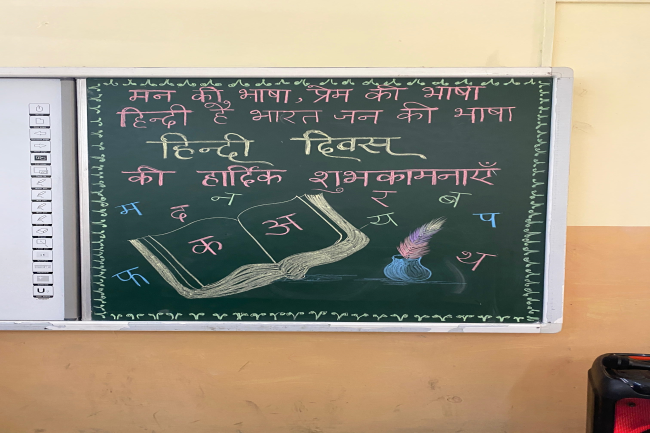 मन की भाषा, प्रेम की भाषा
हिन्दी है भारत जन की भाषा
हिन्दी दिवस
की हार्दिक शुभकामनाएँ
म द न र ब
क अ य प
फ थ